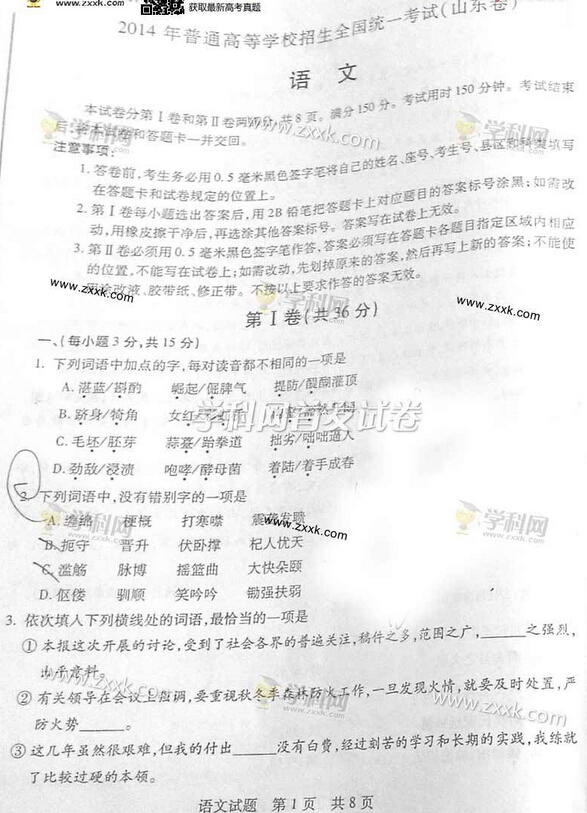 www.zxxk.com
获取最新高考真题
2014 年普通高等学校招生全国统一考试(山东卷)
语 文
本试卷分第Ⅰ卷和第Ⅱ卷两部分,共8页。满分150分。考试用时150分钟。考试结束
后,将本试卷和答题卡一并交回。
注意事项:
1. 答卷前,考生务必用0.5毫米黑色签字笔将自己的姓名、座号、考生号、县区和科类填写
在答题卡和试卷规定的位置上。
2. 第Ⅰ卷每小题选出答案后,用2B铅笔把答题卡上对应题目的答案标号涂黑;如需改
动,用橡皮擦干净后,再选涂其他答案标号。答案写在试卷上无效。
3. 第Ⅱ卷必须用0.5毫米黑色签字笔作答,答案必须写在答题卡各题目指定区域内相应
的位置,不能写在试卷上;如需改动,先划掉原来的答案,然后再写上新的答案;不能使
用涂改液、胶带纸、修正带。不按以上要求作答的答案无效。
学科网
www.zxxk.com
第Ⅰ卷(共36分)
www.zxxk.com
一、(每小题3分,共15分)
1. 下列词语中加点的字,每对读音都不相同的一项是
A. 湛蓝/斟酌 崛起/倔脾气 提防/醍醐灌顶
B. 跻身/犄角 女红/
学科网首发试卷
C. 毛坯/胚芽 蒜薹/跆拳道 拙劣/咄咄逼人
D. 劲敌/浸渍 咆哮/酵母菌 着陆/着手成春
2. 下列词语中,没有错别字的一项是
A. 缠绵 梗概 打寒噤 震聋发聩
B. 扼守 晋升 伏卧撑 杞人忧天
C. 滥觞 脉博 摇篮曲 大快朵颐
D. 伛偻 驯顺 笑吟吟 锄强扶弱
学科网
zxxk.com
3. 依次填入下列横线处的词语,最恰当的一项是
① 本报这次开展的讨论,受到了社会各界的普遍关注,稿件之多,范围之广,______之强烈,
出乎意料。
www.zxxk.com
② 有关领导在会议上强调,要重视秋冬季森林防火工作,一旦发现火情,就要及时处置,严
防火势______。
www.zxxk.com
③ 这几年虽然很艰难,但我的付出______没有白费,经过刻苦的学习和长期的实践,我练就
了比较过硬的本领。
语文试题 第1页 共8页